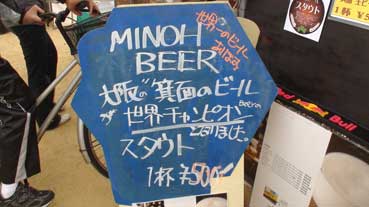 MINOH
BEER
世界一のビール
大阪の箕面のビール
が世界チャンピオン
となりました。
スタウト
1杯 ¥500
スタウト
1杯 ¥5
Red Bull